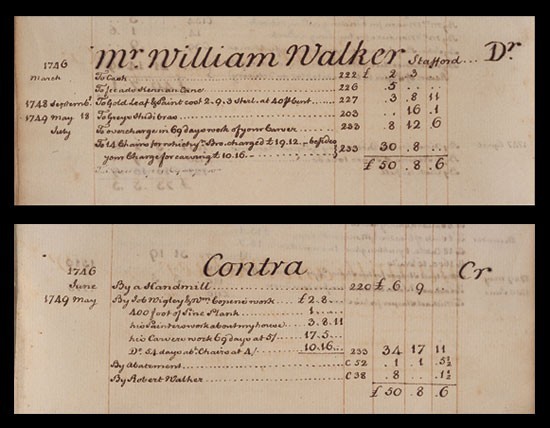 1746 Mr. William Walker Stafford... Dr
March To Cash 222 £ 2 3
To 226 5
1748 Septembr. To Gold Leaf & Paint cost 2-9-3 Sterl. at 40 P Cent. 227 3 8 11
1749 May 18 To Greys Hudibras 203 16 1
July To overcharge in 69 days work of your Carver 233 8 12 6
To 14 Chairs for which yr. Bro. charged £19.12 - besides
your Charge for carving £10.16 233 30 8
£ 50 8 6
1746 Contra Cr
June By a Handmill 220 £ 6 9
1749 May By Job Wigley & Wm. work £ 2.8
400 foot of Pine Plank 1
his Painters work about my house 3.8.11
his Carvers work 69 days at 5/ 17.5
Do. 54 days abt. Chairs at 4/ 10.16 233 34 17 11
By Abatement C 52 1 1 5½
By Robert Walker C 38 8 1½
£ 50 8 6